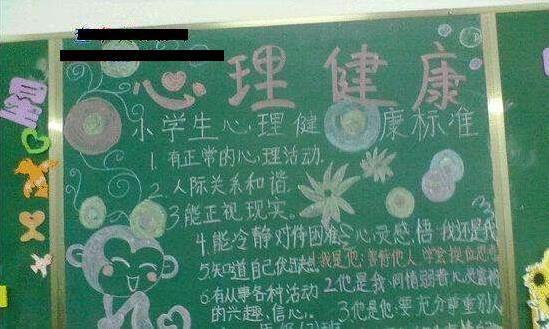 星
心理健康
小学生心理健康标准
1.有正常的心理活动.
2.人际关系和谐.
3能正视现实。
4.能冷静对待困难
心灵感悟
我还是我
5知道自己优缺点
1我是他:善待他人 学会换位思
6.有从事各种活动
的兴趣、信心。
2他是我:同情弱者
3他是他:要充分尊重别人